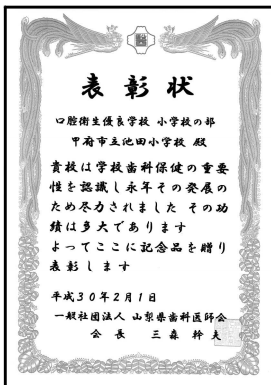 表彰状
口腔衛生優良学校 小学校の部
甲府市立池田小学校 殿
貴校は学校歯科保健の重要
性を認識し永年その発展の
ため尽力されました その功
績は多大であります
よってここに記念品を贈り
表彰します
平成30年2月1日
一般社団法人 山梨県歯科医師会
会長 三森 幹夫